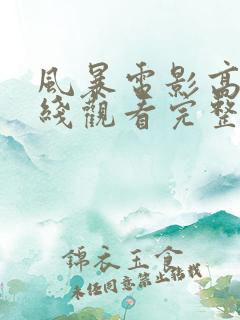 風暴雷影高
綫觀看完整
錦衣玉食
未经同意禁止转载